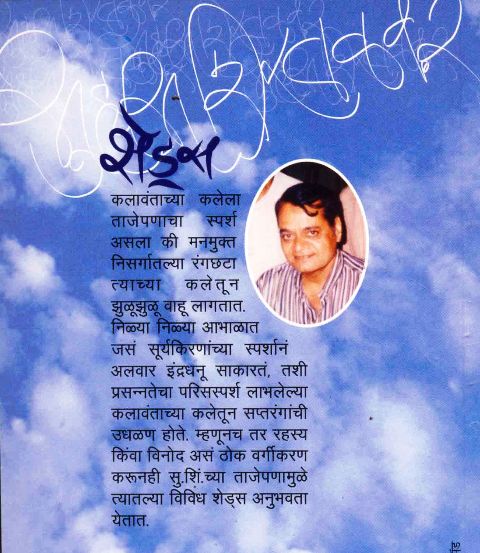 शेड्स
कलावंताच्या कलेला
ताजेपणाचा स्पर्श
असला की मनमुक्त
निसर्गातल्या रंगछटा
त्याच्या कलेतून
झुळूझुळू वाहू लागतात.
निळ्या निळ्या आभाळात
जसं सूर्यकिरणांच्या स्पर्शानं
अलवार इंद्रधनू साकारतं, तशी
प्रसन्नतेचा परिसस्पर्श लाभलेल्या
कलावंताच्या कलेतून सप्तरंगांची
उधळण होते. म्हणूनच तर रहस्य
किंवा विनोद असं ठोक वर्गीकरण
करूनही सु.शिं.च्या ताजेपणामुळे
त्यातल्या विविध शेड्स अनुभवता
येतात.